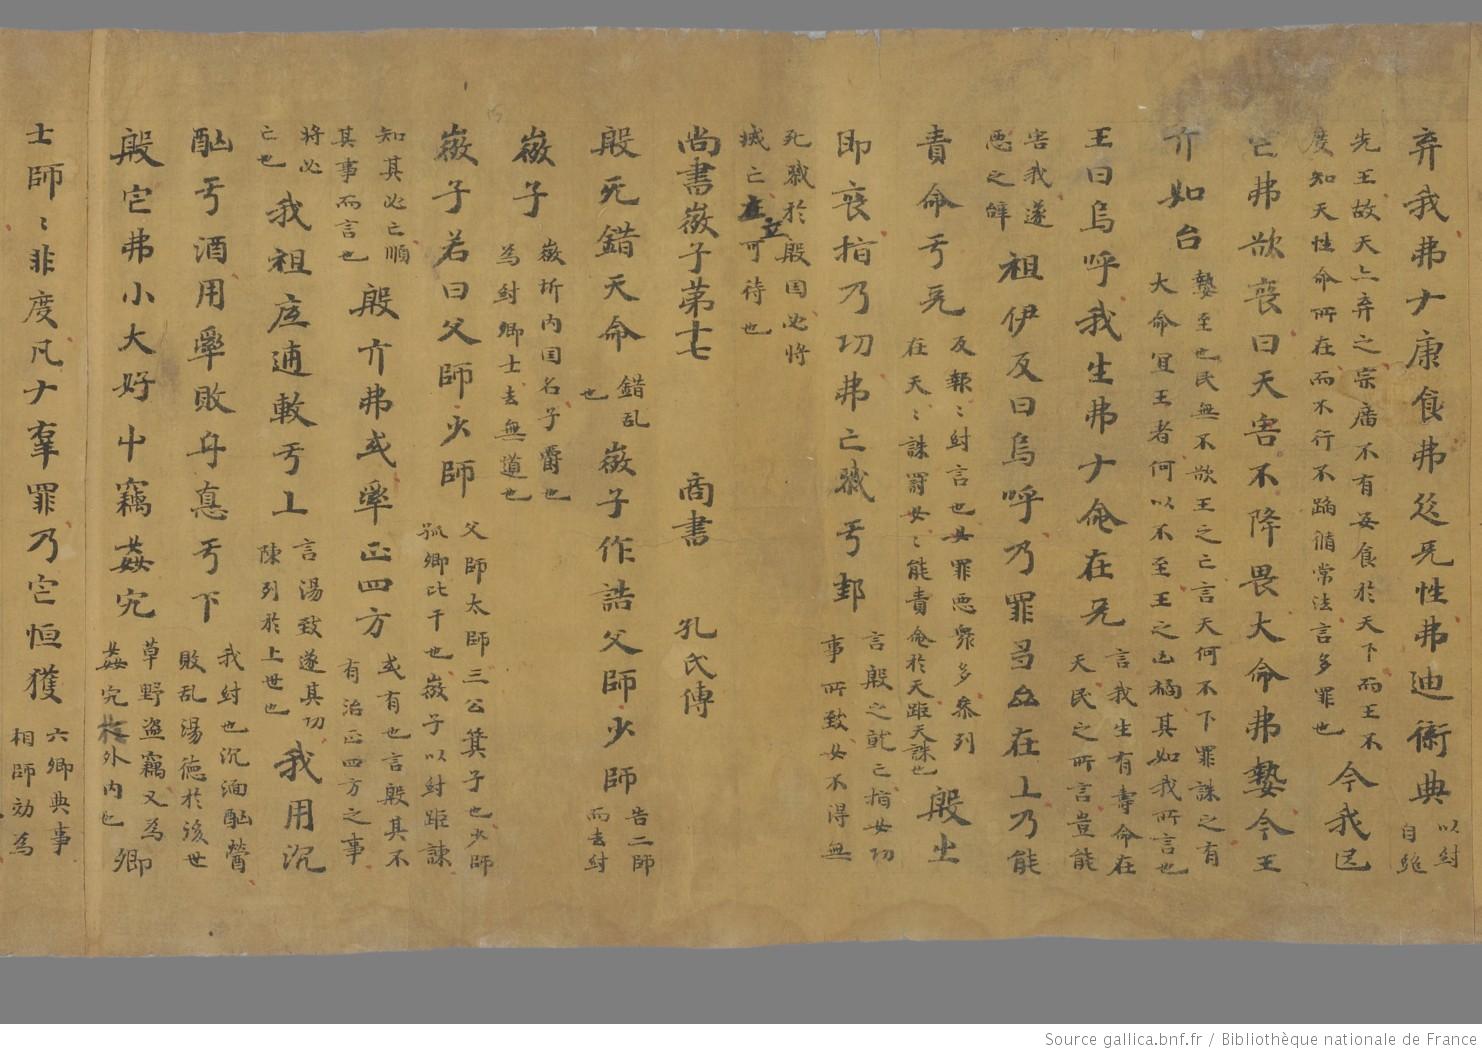 弃我弗ナ康食弗㤅𠑽性弗迪衜典以紂自絶
先王故天亦弃之宗廟不有安食於天下而王不度知天性命所在而不行不蹈循常法言多罪也今我民
它弗欲喪曰天害不降畏大命弗摯今王
亓如台摯至也民無不欲王之亡言天何不下罪誅之有大命宜王者何以不至王之凶禍其如我所言也
王曰烏呼我生弗ナ命在兂言我生有壽命在天民之所言豈能
害我遂惡之辝祖伊反曰烏呼乃罪多厽在上乃能
責命亐兂反報〻紂言也女罪惡衆多參列在天〻誅罰女〻能責命於天距天誅也殷㞢
即喪指乃功弗亡戮亐邦言殷之就亡指女功事所致女不得無
死戮於殷國必將滅亡立可待也
尚書微子苐十七　商書　孔氏傳
殷死錯天命錯乱也微子作誥父師少師告二師而去紂
微子微圻内国名子爵也為紂卿士去無道也
微子若曰父師少師父師太師三公箕子也少師孤卿比干也微子以紂距諫
知其必亡順其事而言也殷亓弗或𤔔正四方或有也言殷其不有治正四方之事
將必亡也我祖厎遖敕亐上言湯致遂其功陳列於上世也我用沉
酗亐酒用𤔔敗厥悳亐下我紂也沉湎酗醟敗乱湯德於後世
殷它弗小大好屮竊姦宄草野盗竊又為姦宄外内也卿
士師〻非度凡ナ辠罪乃它恒獲六卿典事相師効為
Source gallica.bnf.fr / Bibliothèque nationale de France